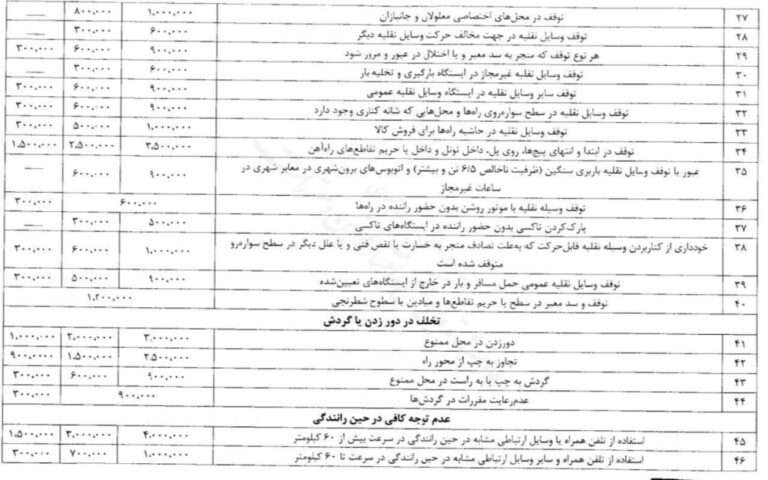 ۲۷ توقف در محل‌های اختصاصی معلولان و جانبازان ۱,۰۰۰,۰۰۰ ۸۰۰,۰۰۰ —
۲۸ توقف وسایل نقلیه در جهت مخالف حرکت وسایل نقلیه دیگر ۶۰۰,۰۰۰ ۳۰۰,۰۰۰ —
۲۹ هر نوع توقف که منجر به سد معبر و یا اختلال در عبور و مرور شود ۹۰۰,۰۰۰ ۶۰۰,۰۰۰ ۳۰۰,۰۰۰
۳۰ توقف وسایل نقلیه غیرمجاز در ایستگاه بارگیری و تخلیه بار ۶۰۰,۰۰۰ ۳۰۰,۰۰۰ —
۳۱ توقف سایر وسایل نقلیه در ایستگاه وسایل نقلیه عمومی ۹۰۰,۰۰۰ ۶۰۰,۰۰۰ ۳۰۰,۰۰۰
۳۲ توقف وسایل نقلیه در سطح سواره‌روی راه‌ها و محل‌هایی که شانه کناری وجود دارد ۹۰۰,۰۰۰ ۶۰۰,۰۰۰ ۳۰۰,۰۰۰
۳۳ توقف وسایل نقلیه در حاشیه راه‌ها برای فروش کالا ۱,۰۰۰,۰۰۰ ۵۰۰,۰۰۰ ۳۰۰,۰۰۰
۳۴ توقف در ابتدا و انتهای پیچ‌ها، روی پل، داخل تونل و داخل یا حریم تقاطع‌های راه‌آهن ۳,۵۰۰,۰۰۰ ۲,۵۰۰,۰۰۰ ۱,۵۰۰,۰۰۰
۳۵ عبور یا توقف وسایل نقلیه باربری سنگین (ظرفیت ناخالص ۶/۵ تن و بیشتر) و اتوبوس‌های برون‌شهری در معابر شهری در ۹۰۰,۰۰۰ ۶۰۰,۰۰۰ —
ساعات غیرمجاز
۳۶ توقف وسیله نقلیه با موتور روشن بدون حضور راننده در راه‌ها ۶۰۰,۰۰۰ ۳۰۰,۰۰۰
۳۷ پارک‌کردن تاکسی بدون حضور راننده در ایستگاه‌های تاکسی ۵۰۰,۰۰۰ ۳۰۰,۰۰۰ —
۳۸ خودداری از کناربردن وسیله نقلیه قابل‌حرکت که به‌علت تصادف منجر به خسارت یا نقص فنی و یا علل دیگر در سطح سواره‌رو ۱,۰۰۰,۰۰۰ ۶۰۰,۰۰۰ ۳۰۰,۰۰۰
متوقف شده است
۳۹ توقف وسایل نقلیه عمومی حمل مسافر و بار در خارج از ایستگاه‌های تعیین‌شده ۹۰۰,۰۰۰ ۵۰۰,۰۰۰ ۳۰۰,۰۰۰
۴۰ توقف و سد معبر در سطح یا حریم تقاطع‌ها و میادین با سطوح شطرنجی ۱,۲۰۰,۰۰۰
تخلف در دور زدن یا گردش
۴۱ دورزدن در محل ممنوع ۳,۰۰۰,۰۰۰ ۲,۰۰۰,۰۰۰ ۱,۰۰۰,۰۰۰
۴۲ تجاوز به چپ از محور راه ۲,۵۰۰,۰۰۰ ۱,۵۰۰,۰۰۰ ۹۰۰,۰۰۰
۴۳ گردش به چپ یا به راست در محل ممنوع ۹۰۰,۰۰۰ ۶۰۰,۰۰۰ ۳۰۰,۰۰۰
۴۴ عدم‌رعایت مقررات در گردش‌ها ۹۰۰,۰۰۰ ۳۰۰,۰۰۰
عدم توجه کافی در حین رانندگی
۴۵ استفاده از تلفن همراه یا وسایل ارتباطی مشابه در حین رانندگی در سرعت بیش از ۶۰ کیلومتر ۴,۰۰۰,۰۰۰ ۳,۰۰۰,۰۰۰ ۱,۵۰۰,۰۰۰
۴۶ استفاده از تلفن همراه و سایر وسایل ارتباطی مشابه در حین رانندگی در سرعت تا ۶۰ کیلومتر ۱,۰۰۰,۰۰۰ ۷۰۰,۰۰۰ ۳۰۰,۰۰۰